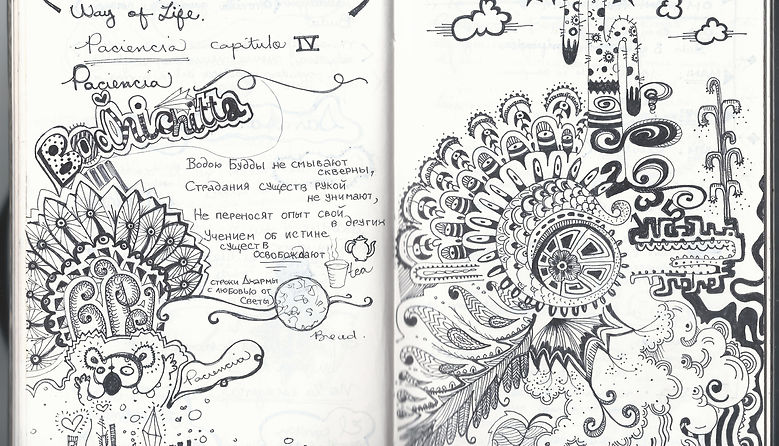 Way of Life.
Paciencia capítulo IV.
Paciencia
Bodhichitta
Водою Будды не смывают
скверны,
Страдания существ рукой
не унимают,
Не переносят опыт свой
в других
Учением об истине
существ
Освобождают
tea
строки Дхармы
с любовью от
Светы
Bread.
Paciencia